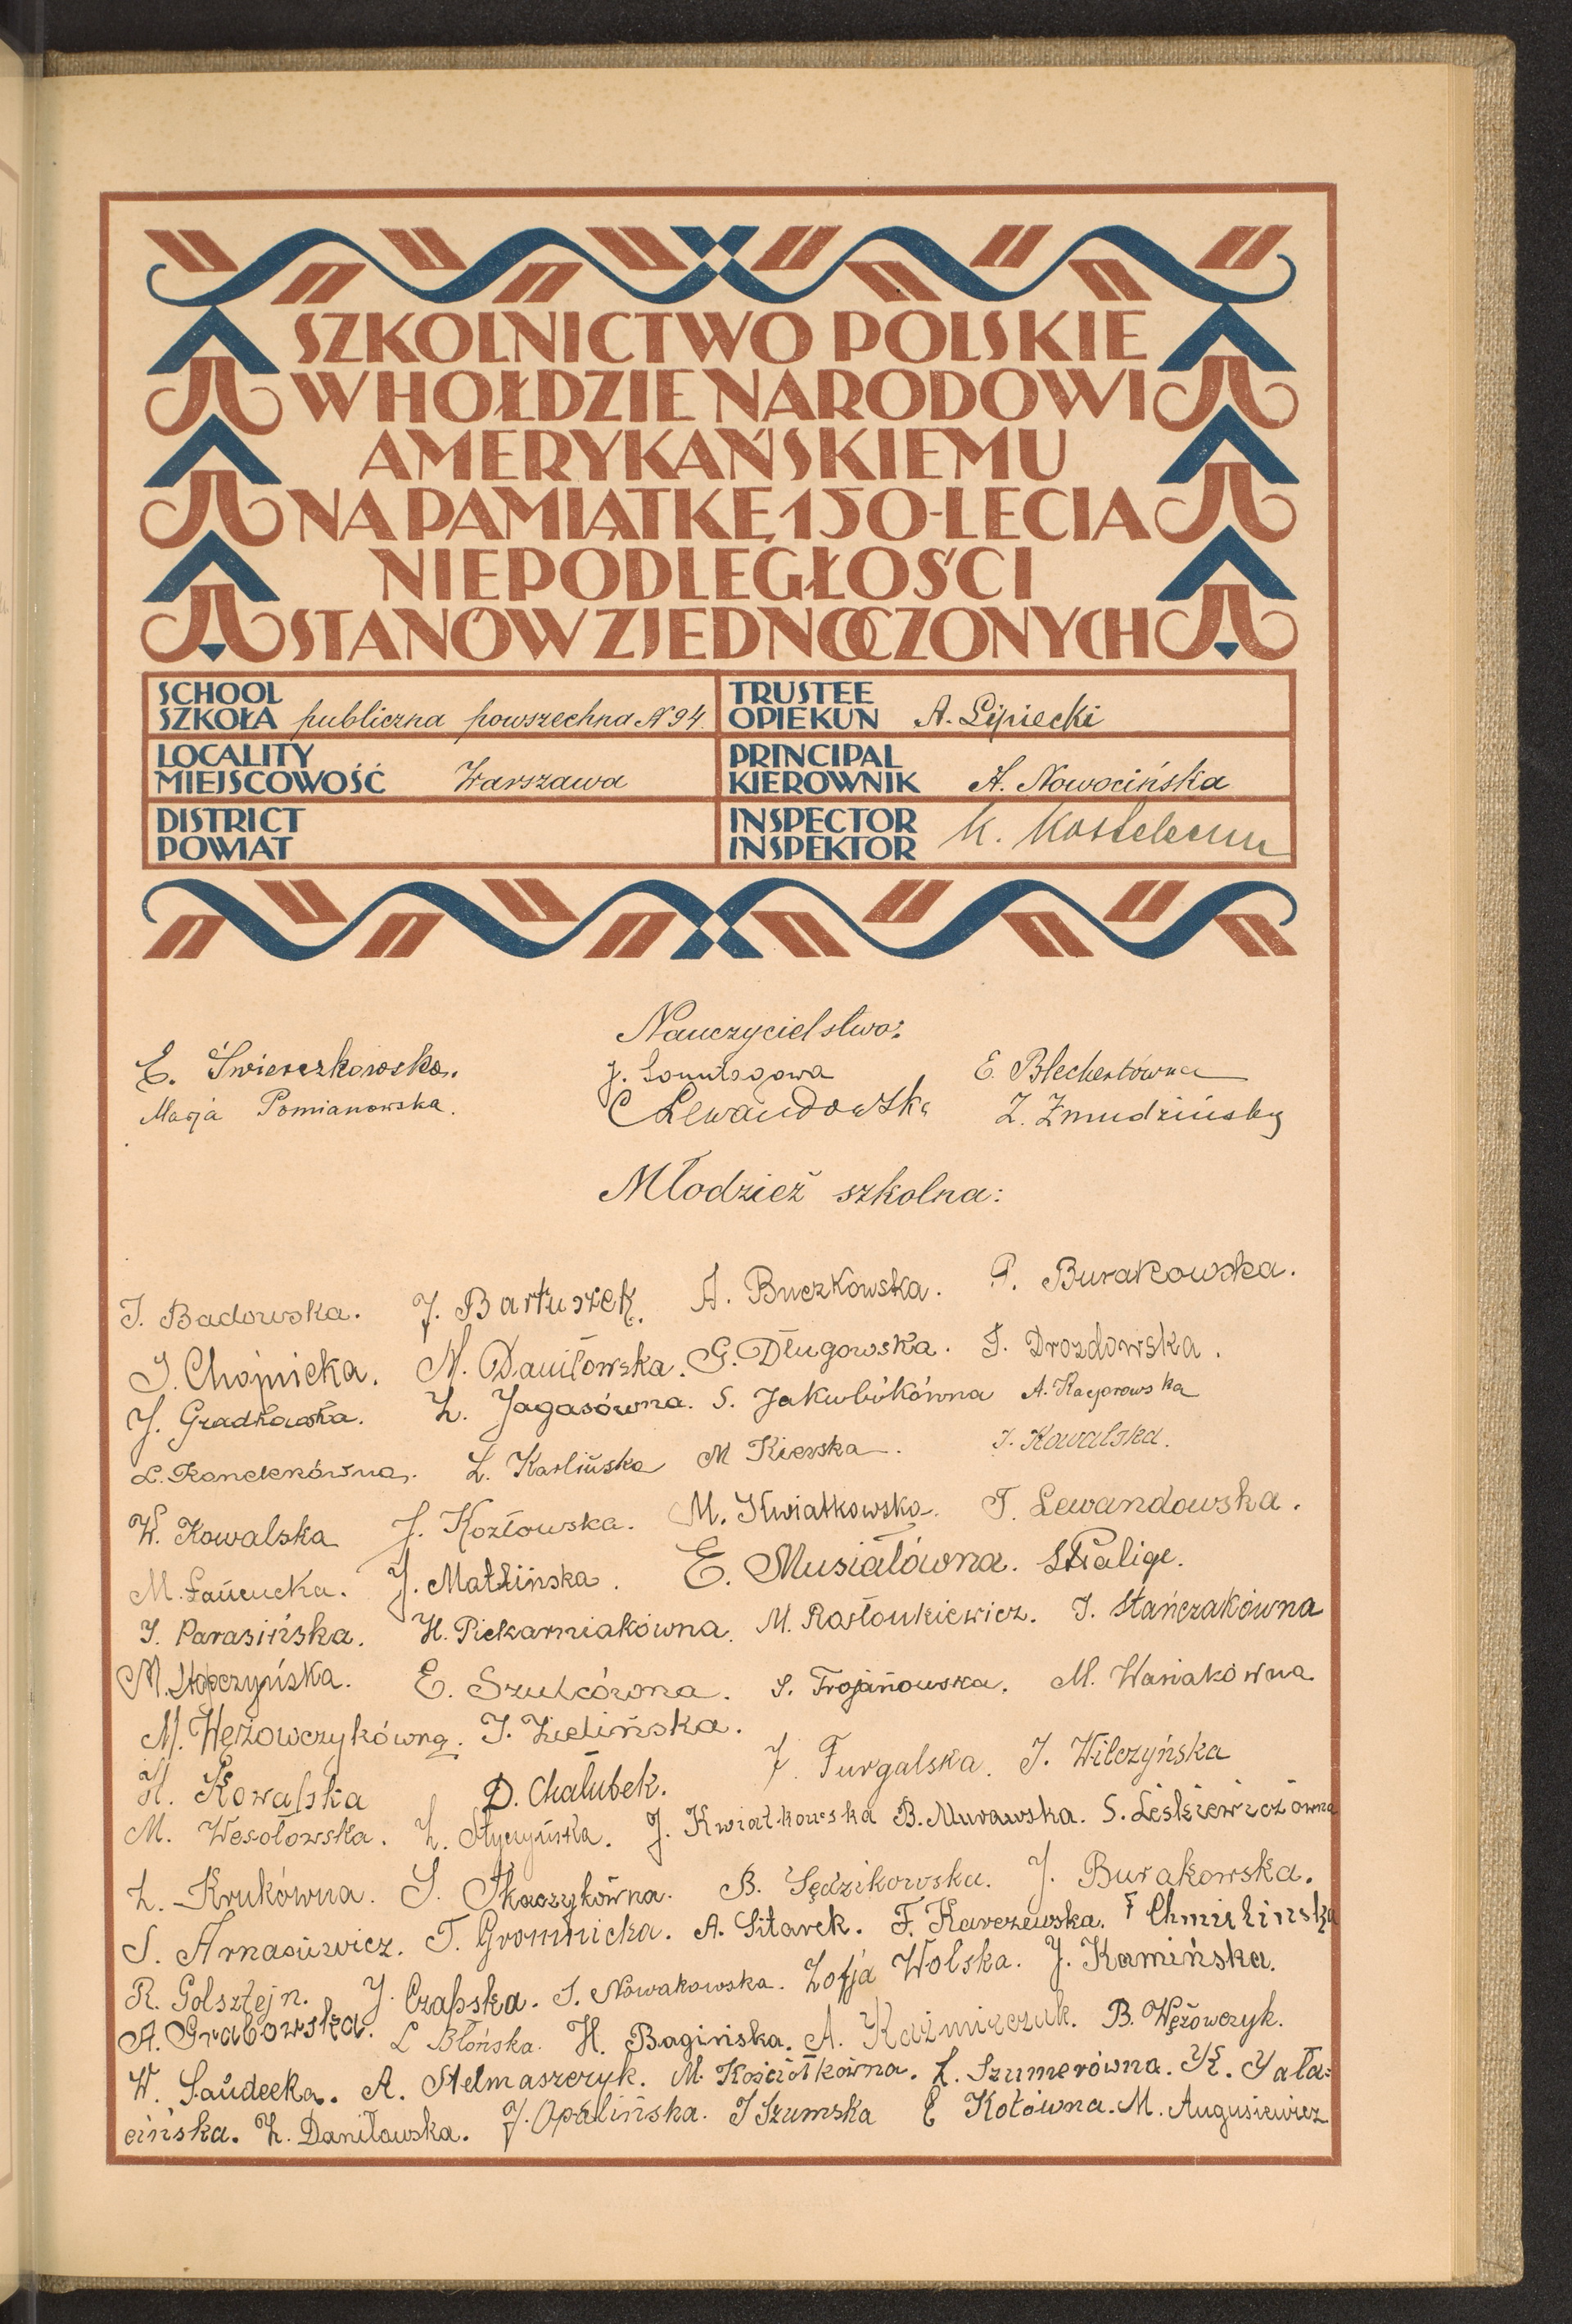 SZKOLNICTWO POLSKIE
W HOŁDZIE NARODOWI
AMERYKAŃSKIEMU
NA PAMIĄTKĘ 150-LECIA
NIEPODLEGŁOŚCI
STANÓW ZJEDNOCZONYCH
SCHOOL
SZKOŁA publiczna powszechna N 94.
TRUSTEE
OPIEKUN A. Lipiecki
LOCALITY
MIEJSCOWOŚĆ Warszawa
PRINCIPAL
KIEROWNIK A. Nowocińska
DISTRICT
POWIAT
INSPECTOR
INSPEKTOR K.
Nauczycielstwo:
E. Świerczkowska. J. E. Blechertówna
Marja Pomianowska. C Lewandowska Z. Żmudziński
Młodzież szkolna:
I. Badowska. J. Bartuszek. A. Buczkowska. P. Burakowska.
I. Chojnicka. N. Daniłowska. G. Długowska. I. Drozdowska.
J. Gradkowska. Z. Jagasówna. S. Jakubikówna A. Kacprowska
L. Z. Karlińska M Kierska. I. Kowalska.
W. Kowalska J. Kozłowska. M. Kwiatkowska. T. Lewandowska.
M. Łańcucka. J. Matlińska. E. Musiałówna.
I. Parasińska. H. Piekarniakówna. M. I. Stańczakówna
M. Stopczyńska. E. Szulcówna. S. Trojanowska. M. Wasiakówna
M. Wężowczykówna. I. Zielińska.
H. Kowalska D. Chałubek. J. Furgalska. I. Wilczyńska
M. Wesołowska. Z. Styczyńska. J. Kwiatkowska B. Murawska. S. Leśkiewiczówna
Z. Krukówna. S. Tkaczykówna. B. Sędzikowska. J. Burakowska.
S. Arnasiewicz. T. Gromnicka. A. Sitarek. F. Karczewska. F Chmielińska
R. Golsztejn. J. Czapska. S. Nowakowska. Zofja Wolska. J. Kamińska.
A. Grabowska. L Błońska. H. Bagińska. A. Kaźmirczuk. B. Wężowczyk.
W. Saudecka. A. Stelmaszczyk. M. Kościółkówna. Z. Szumerówna. K. Jała-
cińska. Z. Daniłowska. J. Opalińska. I Szumska E Kotówna. M. Augusiewicz